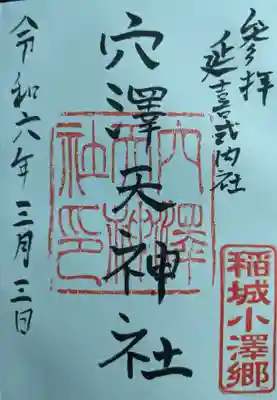 参拝
延喜式内社
穴澤天神社
令和六年三月三日
稲城小澤郷
穴澤天神社印